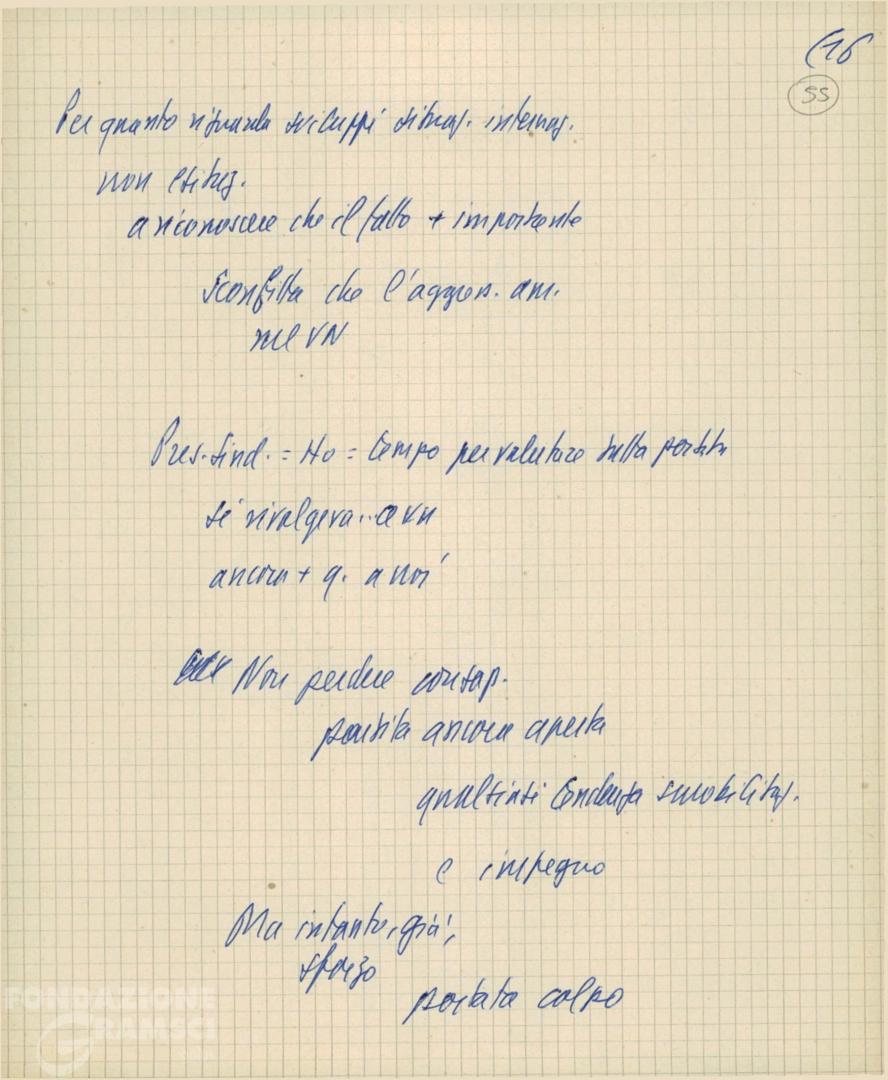 (16
55
Per quanto riguarda sviluppi situaz. internaz.
non esitaz.
a riconoscere che il fatto + importante
sconfitta che l'aggress. am.
nel VN
Pres. = Ho = tempo per valutare tutta portata
si rivolgeva .. a vn
ancora + q. a noi
Non perdere consap.
partita ancora aperta
qualsiasi tendenza smobilitaz.
e impegno
Ma intanto, già,
sforzo
portata colpo
FONDAZIONE
GRAMSCI